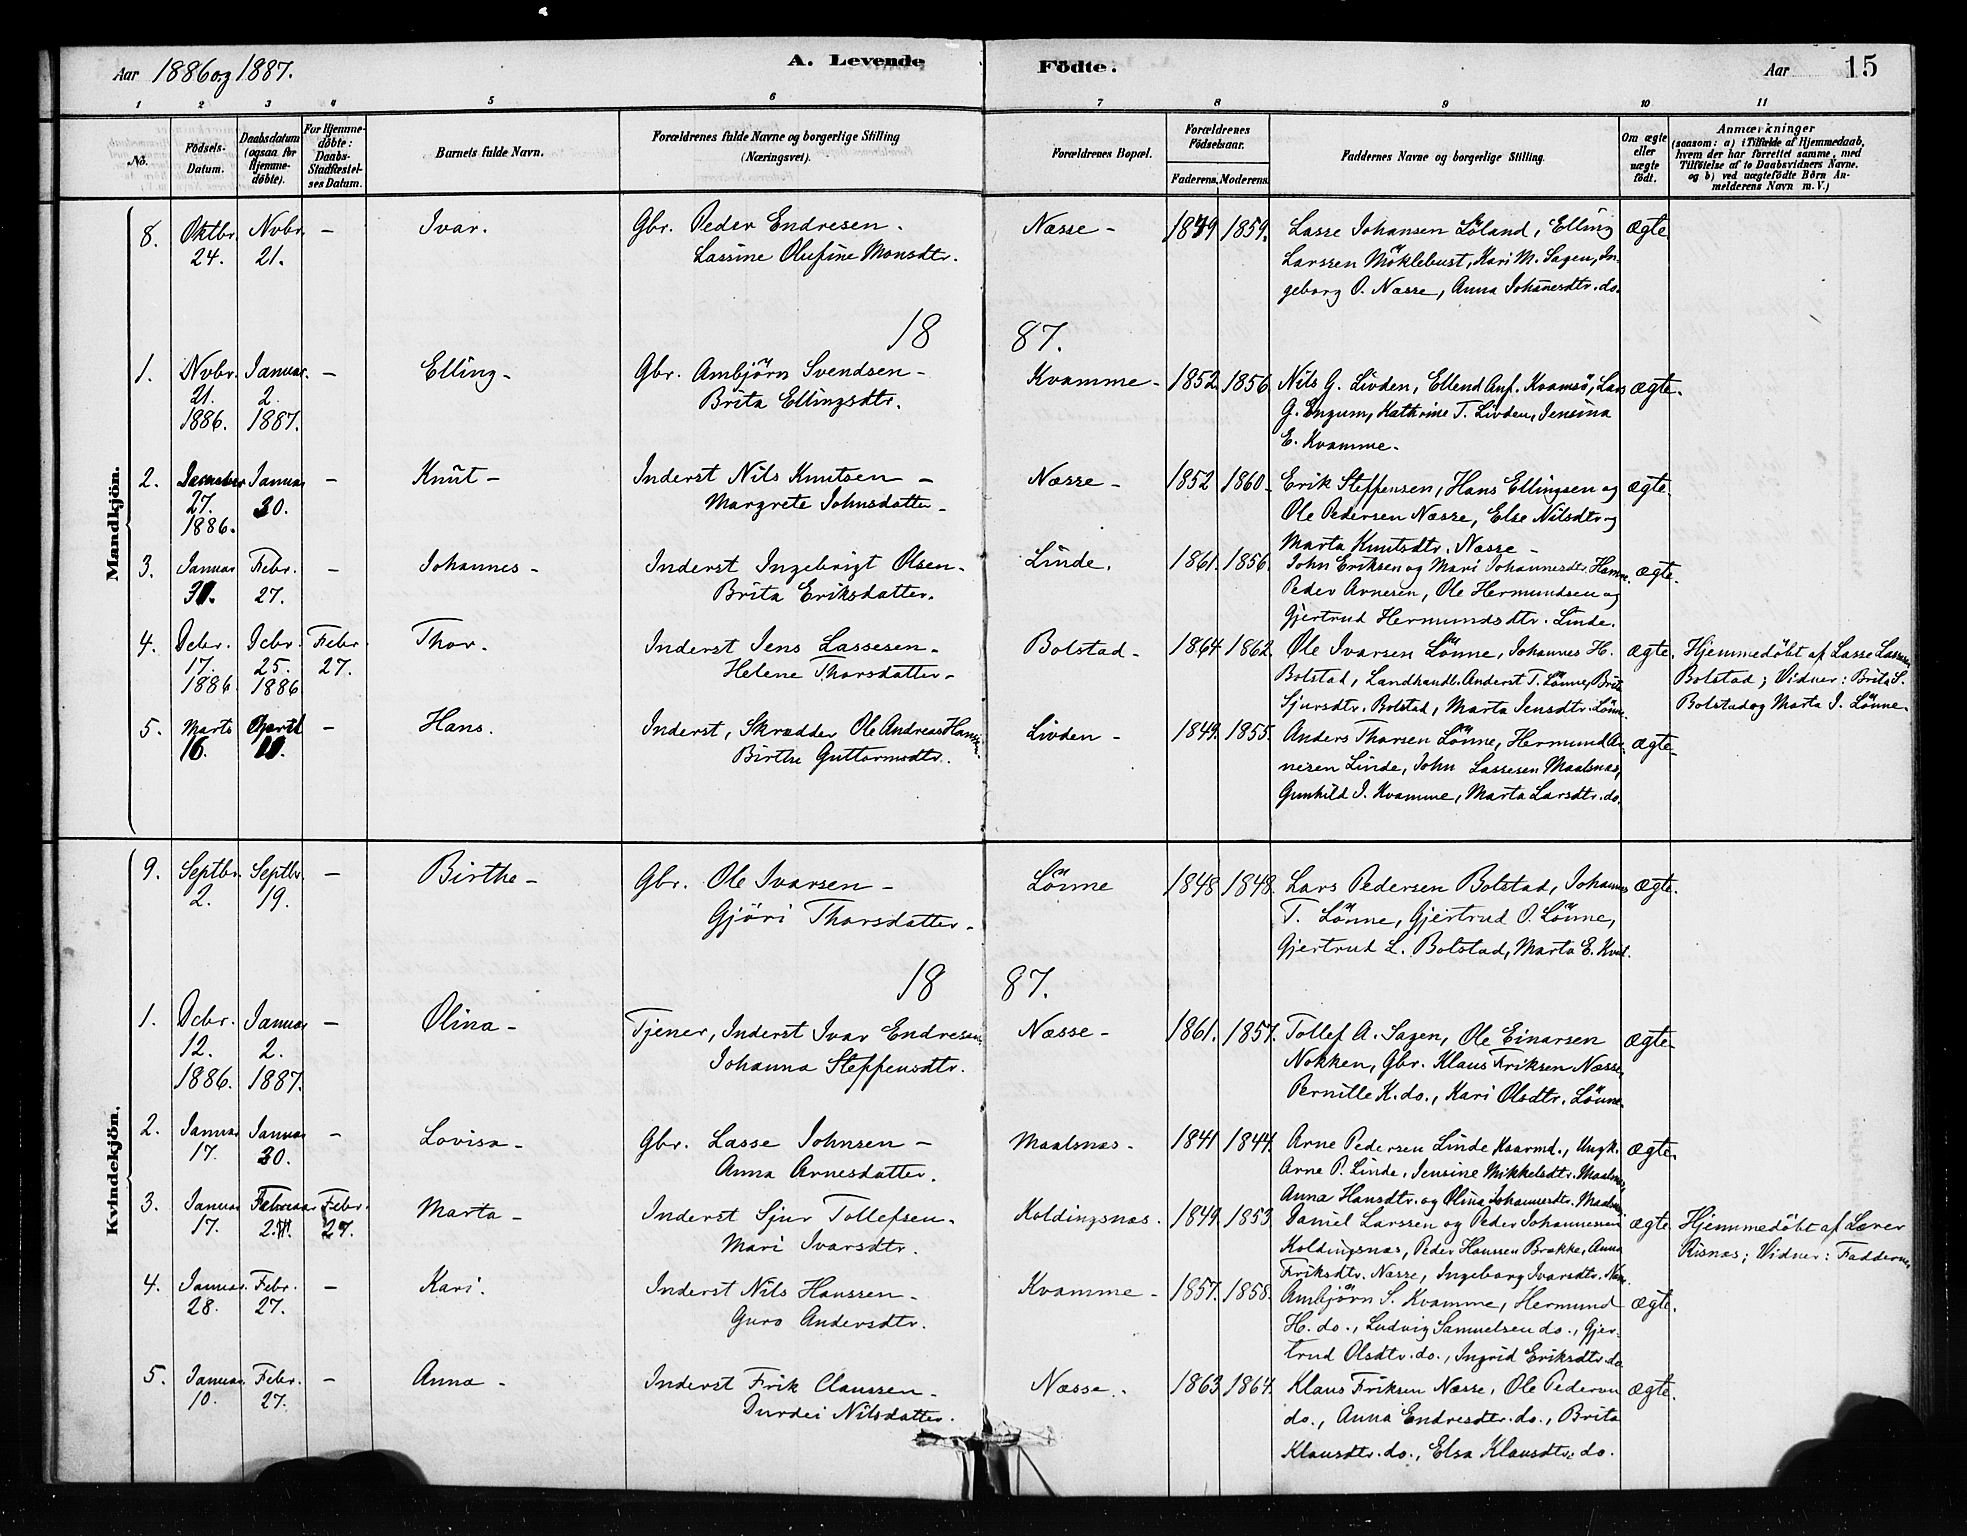 Aar 1886 og 1887. A. Levende Födte. Aar 15
1 2 3 4 5 6 7 8 9 10 11
No. Födsels-Datum. Daabsdatum (ogsaa for Hjemmedöbte). For Hjemmedöbte: Daabs-Stadfæstelses Datum. Barnets fulde Navn. Forældrenes fulde Navne og borgerlige Stilling (Næringsvei). Forældrenes Bopæl. Forældrenes Födselsaar. Faderens. Moderens. Faddernes Navne og borgerlige Stilling. Om ægte eller uægte födt. Anmærkninger (saasom: a) i Tilfælde af Hjemmedaab, hvem der har forrettet samme, med Tilföielse af to Daabsvidners Navne. og b) ved uægtefödte Börn Anmelderens Navn m. V.)
Mandkjön.
8. Oktbr. Novbr. – Ivar. Gbr. Peder Endresen. Næsse – 1859. Lasse Johansen Löland, Elling ægte
24. 21. Lassine Olufine Monsdtr. Larssen Möklebust, Kari M. Sagen, In-
geborg O. Næsse, Anna Johanesdtr. do.
18 87.
1. Novbr. Januar. – Elling – Gbr. Ambjörn Svendsen – Kvamme – 1852 1856 Nils G. Livden, Ellend Anf. Kvamsö, Lars ægte.
21. 2. Brita Ellingsdtr. G. Engum, Kathrine T. Livden, Jensina
1886. 1887. E. Kvamme.
2. Januar – Knut – Inderst Nils Knutsen – Næsse – 1852 1860 Erik Steffensen, Hans Ellingsen og ægte.
27. 30. Margrete Johnsdatter – Ole Pedersen Næsse, Else Nilsdtr og
1886. Marta Knutsdtr. Næsse –
3. Januar Febr. – Johannes – Inderst Ingebrigt Olsen. Linde. 1861. 1856. John Eriksen og Mari Johannesdtr. ægte.
27. Brita Eriksdatter. Peder Arnesen, Ole Hermundsen og
Gjertrud Hermundsdtr. Linde.
4. Decbr. Dcbr. Febr. Thor. Inderst Jens Lassesen – Bolstad – 1864 1862. Ole Ivarsen Lönne, Johannes H. ægte. Hjemmedöbt af Lasse Lassesen
17. 25. 27. Helene Thorsdatter – Bolstad, Landhandl. Anderst T. Lönne, Brita Bolstad; Vidner: Brita S.
1886. 1886 Sjursdtr. Bolstad, Marta Jensdtr. Lönne. Bolstad og Marta J. Lönne.
5. Marts – Hans. Inderst, Skrædder Ole Andreas Hansen Livden – 1849. 1855. Anders Thorsen Lönne, Hermund Ar- ægte –
16. Birthe Guttormsdtr. nesen Linde, John Lassesen Maalsnas,
Gunhild I. Kvamme, Marta Larsdtr. do.
Kvindekjön.
9. Septbr. Septbr. – Birthe – Gbr. Ole Ivarsen – Lönne 1848 1848. Lars Pedersen Bolstad, Johannes ægte.
2. 19. Gjöri Thorsdatter – T. Lönne, Gjertrud O. Lönne,
Gjertrud L. Bolstad, Marta E.
18 87.
1. Dcbr. Januar – Olina – Tjener, Inderst Ivar Endresen Næsse – 1861. 1857. Tollef A. Sagen, Ole Einarsen ægte –
12. 2. Johanna Steffensdtr. Nokken, Gbr. Klaus Friksen Næsse,
1886. 1887. Pernille K. do., Kari Olsdtr. Lönne.
2. Januar Januar – Lovisa – Gbr. Lasse Johnsen – Maalsnas – 1841 1844. Arne Pedersen Linde Kaarmd., Ungk. ægte.
17. 30. Anna Arnesdatter. Arne P. Linde, Jensine Mikkelsdtr. Maalsnas,
Anna Hansdtr. og Olina Johannesdtr. Maalsnas
3. Januar Februar Febr. Marta – Inderst Sjur Tollefsen – Koldingsnas. 1849. 1853. Daniel Larssen og Peder Johannesen ægte. Hjemmedöbt af Lærer
17. 27. Mari Ivarsdtr. Koldingsnas, Peder Hanssen Brække, Anna Risnæs; Vidner: Fadderne.
Friksdtr. Næsse, Ingeborg Ivarsdtr.
4. Januar. Febr. – Kari. Inderst Nils Hanssen – Kvamme – 1857. 1858. Ambjörn S. Kvamme, Hermund ægte.
28. 27. Guro Andersdtr. H. do., Ludvig Samuelsen do., Gjer-
trud Olsdtr. do., Ingrid Eriksdtr. do
5. Januar. Febr. – Anna – Inderst Frik Claussen – Næsse. 1863 1864. Klaus Friksen Næsse, Ole Pedersen ægte.
10. 27. Durdei Nilsdatter. do., Anna Endresdtr. do., Brita
Klausdtr. do., Elsa Klausdtr. do.